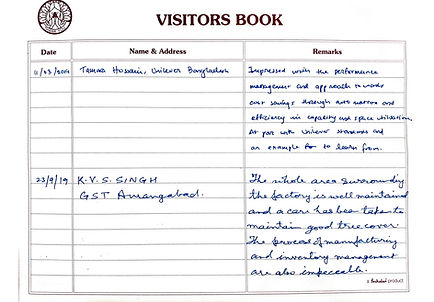 VISITORS BOOK
Date Name & Address Remarks
Hossain, Unilever Bangladesh Impressed with the performance
management and approach towards
cost savings through automation and
efficiency in capacity and space utilisation.
At par with Unilever standards and
an example to learn from.
23/9/19 K.V.S. SINGH The whole area surrounding
GST Aurangabad. the factory is well maintained
and a care has been taken to
maintain good tree cover.
The process of manufacturing
and inventory management
are also impeccable.
product